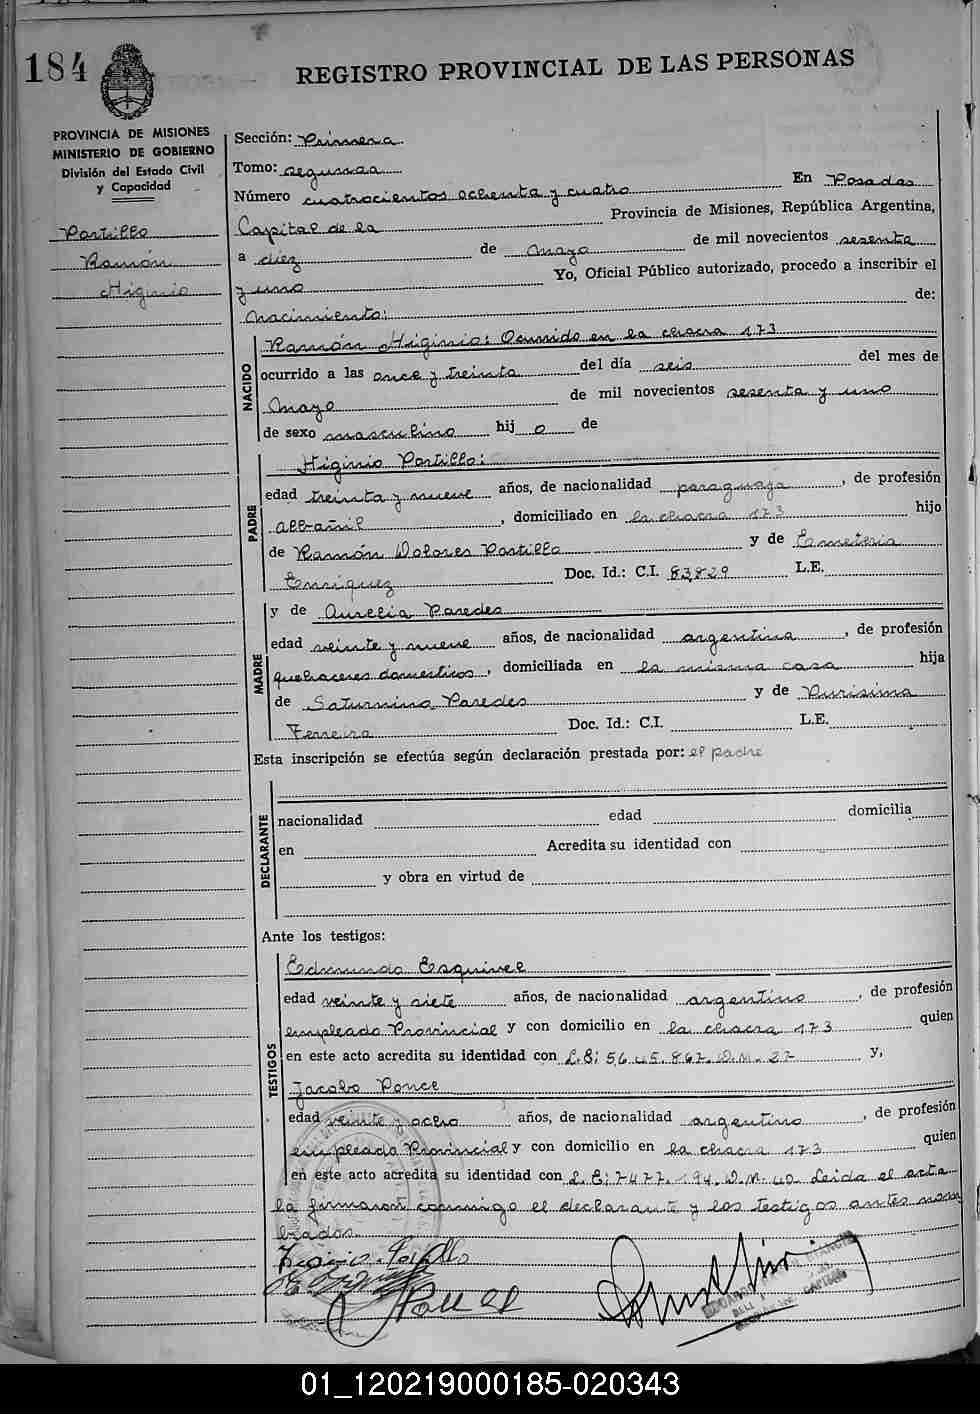 184
REGISTRO PROVINCIAL DE LAS PERSONAS
PROVINCIA DE MISIONES
MINISTERIO DE GOBIERNO
División del Estado Civil
y Capacidad
Portillo
Ramón
Higinio
Sección: Primera
Tomo: segundo
Número cuatrocientos ochenta y cuatro En Posadas
Capital de la Provincia de Misiones, República Argentina,
a diez de mayo de mil novecientos sesenta
y uno Yo, Oficial Público autorizado, procedo a inscribir el
nacimiento: de:
NACIDO
Ramón Higinio: Ocurrido en la chacra 173
ocurrido a las once y treinta del día seis del mes de
Mayo de mil novecientos sesenta y uno
de sexo masculino hij o de
PADRE
Higinio Portillo:
edad treinta y nueve años, de nacionalidad paraguaya, de profesión
albañil, domiciliado en la chacra 173 hijo
de Ramón Dolores Portillo y de Emeteria
Enriquez Doc. Id.: C.I. 83,829 L.E.
MADRE
y de Aurelia Paredes
edad veinte y nueve años, de nacionalidad argentina, de profesión
quehaceres domesticos, domiciliada en la misma casa hija
de Saturnino Paredes y de Purisima
Ferreira Doc. Id.: C.I. L.E.
Esta inscripción se efectúa según declaración prestada por: el padre
DECLARANTE
nacionalidad edad domicilia
en Acredita su identidad con
y obra en virtud de
Ante los testigos:
TESTIGOS
Edmundo Esquivel
edad veinte y siete años, de nacionalidad argentino, de profesión
empleado Provincial y con domicilio en la chacra 173 quien
en este acto acredita su identidad con L.E: 5645.867. D.M. 27 y,
Jacobo Ponce
edad veinte y ocho años, de nacionalidad argentino, de profesión
empleado Provincial y con domicilio en la chacra 173 quien
en este acto acredita su identidad con L.E: 7477.194. D.M. 40. Leida el acta
la firmaron conmigo el declarante y los testigos antes nom
brados.
Higinio Portillo
01_120219000185-020343